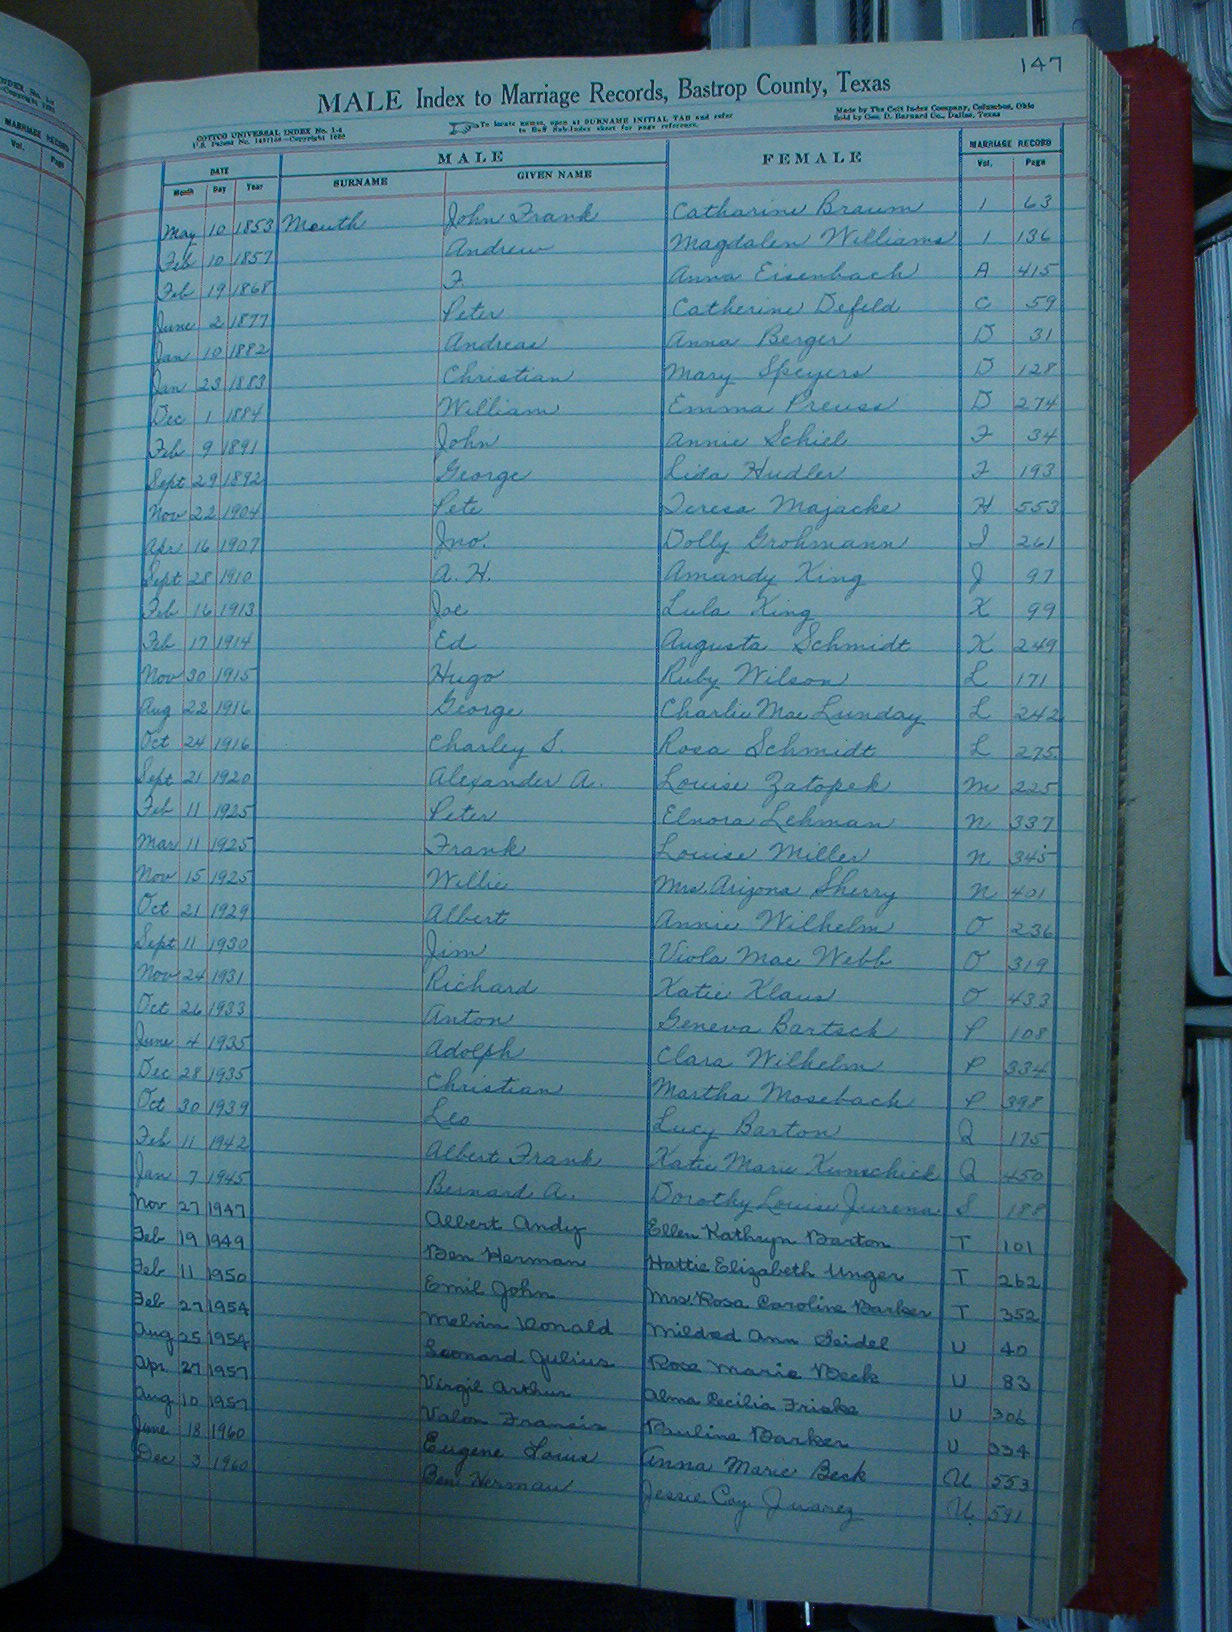 147
MALE Index to Marriage Records, Bastrop County, Texas
COTTCO UNIVERSAL INDEX No. 1-4
To locate names, open at SURNAME INITIAL TAB and refer
to Buff Sub-Index sheet for page reference.
Made by The Cott Index Company, Columbus, Ohio
Sold by Geo. D. Barnard Co., Dallas, Texas
DATE MALE FEMALE MARRIAGE RECORD
Month Day Year SURNAME GIVEN NAME Vol. Page
MARRIAGE RECORD
Vol. Page
May 10 1853 Meuth John Frank Catharine Braum 1 63
Feb 10 1857 Andrew Magdalen Williams 1 136
Feb 19 1868 F. Anna Eisenbach A 415
June 2 1877 Peter Catherine Defeld C 59
Jan 10 1882 Andreas Anna Berger D 31
Jan 23 1883 Christian Mary Speyers D 128
Dec 1 1884 William Emma Preuss D 274
Feb 9 1891 John Annie Schiel F 34
Sept 29 1892 George Lida Hudler F 193
Nov 22 1904 Pete Teresa Majacke H 553
Apr 16 1907 Jno. Dolly Grohmann I 261
Sept 28 1910 A. H. Amandy King J 97
Feb 16 1913 Joe Lula King K 99
Feb 17 1914 Ed Augusta Schmidt K 249
Nov 30 1915 Hugo Ruby Wilson L 171
Aug 22 1916 George Charlie Mae Lunday L 242
Oct 24 1916 Charley S. Rosa Schmidt L 275
Sept 21 1920 Alexander A. Louise Zatopek M 225
Feb 11 1925 Peter Elnora Lehman N 337
Mar 11 1925 Frank Louise Miller N 345
Nov 15 1925 Willie Mrs. Arizona Sherry N 401
Oct 21 1929 Albert Annie Wilhelm O 236
Sept 11 1930 Jim Viola Mae Webb O 319
Nov 24 1931 Richard Katie Klaus O 433
Oct 26 1933 Anton Geneva Bartsch P 108
June 4 1935 Adolph Clara Wilhelm P 334
Dec 28 1935 Christian Martha Mosebach P 398
Oct 30 1939 Leo Lucy Barton Q 175
Feb 11 1942 Albert Frank Katie Marie Kunschick Q 450
Jan 7 1945 Bernard A. Dorothy Louise Jurena S 188
Nov 27 1947 Albert Andy Ellen Kathryn Barton T 101
Feb 19 1949 Ben Herman Hattie Elizabeth Unger T 262
Feb 11 1950 Emil John Mrs Rosa Caroline Barker T 352
Feb 27 1954 Melvin Donald Mildred Ann Seidel U 40
Aug 25 1954 Leonard Julius Rose Marie Beck U 83
Apr. 27 1957 Virgil Arthur Alma Cecilia Friske U 306
Aug 10 1957 Valon Francis Pauline Barker U 334
June 18 1960 Eugene Louis Anna Marie Beck U 553
Dec 3 1960 Ben Herman Jessie Coy Juarez U 591